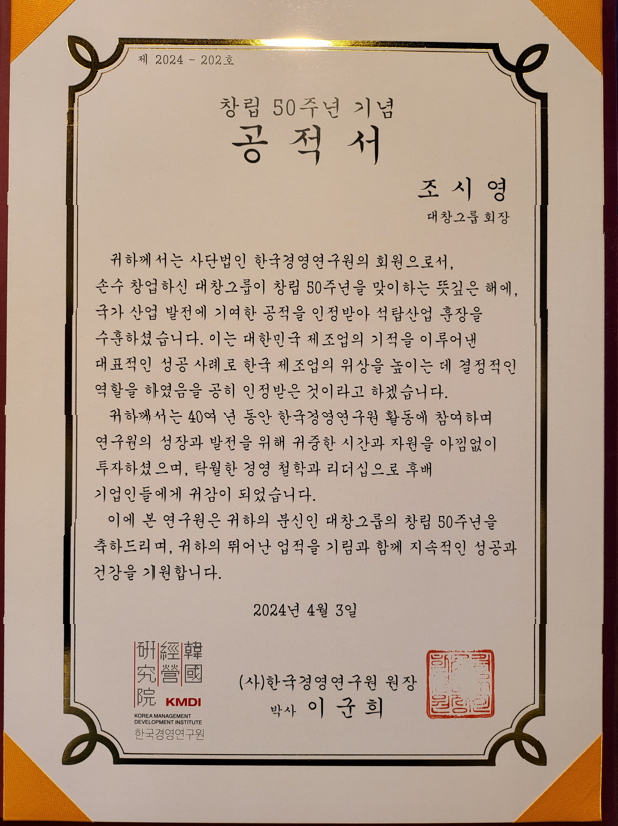 제 2024 - 202호
창립 50주년 기념
공적서
조시영
대창그룹 회장
귀하께서는 사단법인 한국경영연구원의 회원으로서,
손수 창업하신 대창그룹이 창립 50주년을 맞이하는 뜻깊은 해에,
국가 산업 발전에 기여한 공적을 인정받아 석탑산업 훈장을
수훈하셨습니다. 이는 대한민국 제조업의 기적을 이루어낸
대표적인 성공 사례로 한국 제조업의 위상을 높이는 데 결정적인
역할을 하였음을 공히 인정받은 것이라고 하겠습니다.
귀하께서는 40여 년 동안 한국경영연구원 활동에 참여하며
연구원의 성장과 발전을 위해 귀중한 시간과 자원을 아낌없이
투자하셨으며, 탁월한 경영 철학과 리더십으로 후배
기업인들에게 귀감이 되었습니다.
이에 본 연구원은 귀하의 분신인 대창그룹의 창립 50주년을
축하드리며, 귀하의 뛰어난 업적을 기림과 함께 지속적인 성공과
건강을 기원합니다.
2024년 4월 3일
韓國
經營
硏究院
KMDI
KOREA MANAGEMENT
DEVELOPMENT INSTITUTE
한국경영연구원
(사)한국경영연구원 원장
박사 이군희